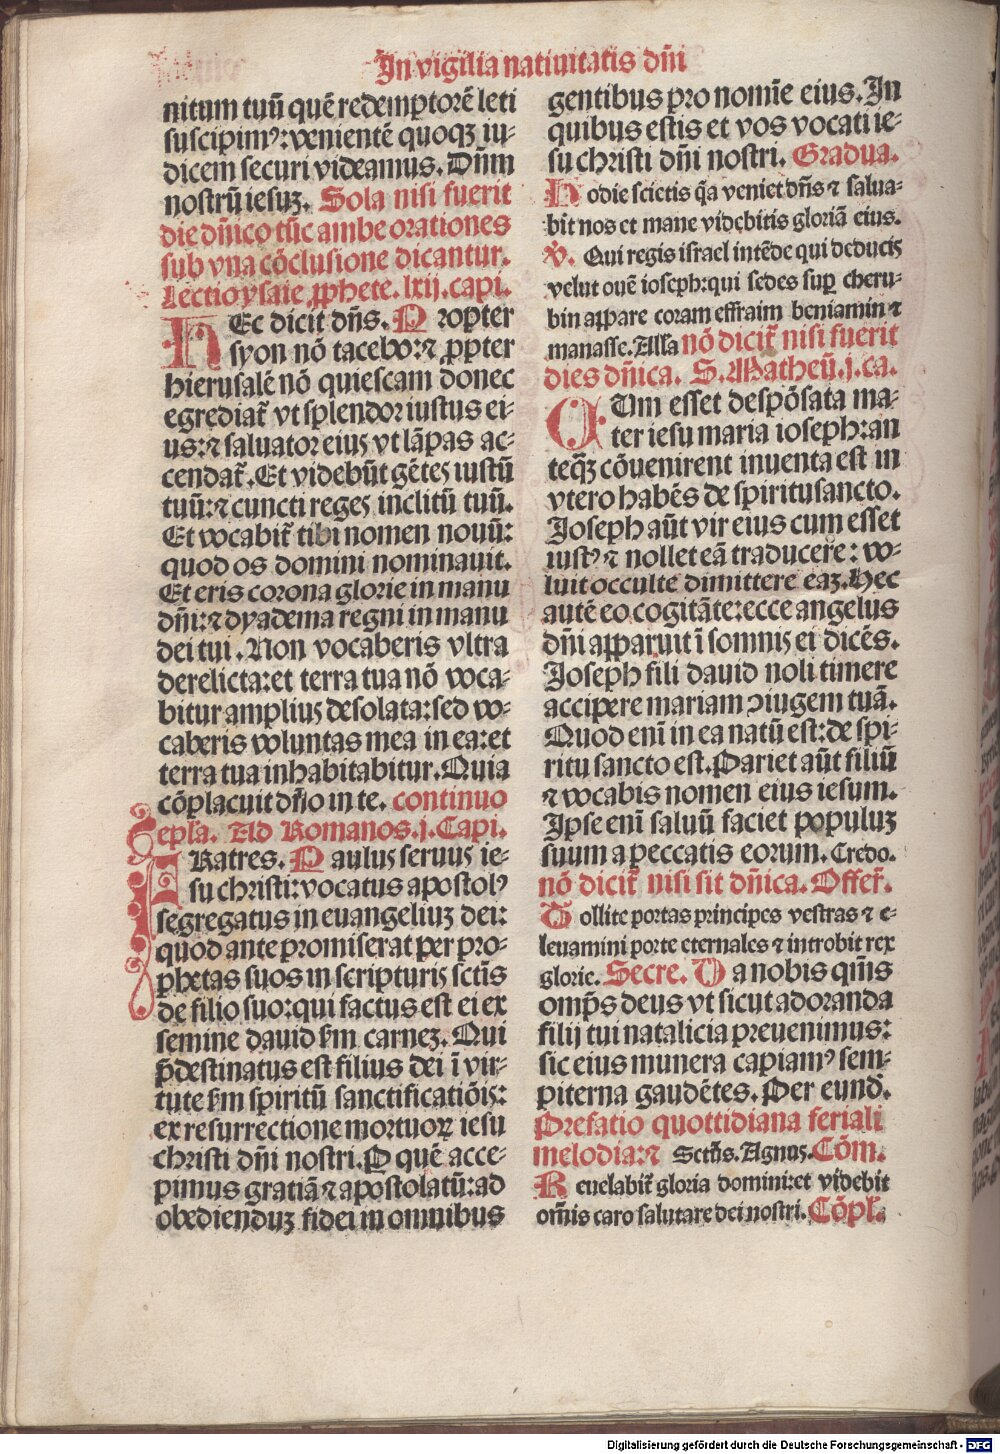 In vigilia natiuitatis dñi
nitum tuũ quẽ redemptorẽ leti
suscipimꝰ: venientẽ quoqꝫ iu-
dicem securi videamus. Dñm
nostrũ iesuꝫ. Sola nisi fuerit
die dñico tũc ambe orationes
sub vna cõclusione dicantur.
Lectio ysaie ꝓphete. lxij. capi.
HEc dicit dñs. Propter
syon nõ tacebo: ⁊ ꝓpter
hierusalẽ nõ quiescam donec
egrediat̃ vt splendor iustus ei-
us: ⁊ saluator eius vt lãpas ac-
cendat̃. Et videbũt gẽtes iustũ
tuũ: ⁊ cuncti reges inclitũ tuũ.
Et vocabit̃ tibi nomen nouũ:
quod os domini nominauit.
Et eris corona glorie in manu
dñi: ⁊ dyadema regni in manu
dei tui. Non vocaberis vltra
derelicta: et terra tua nõ voca-
bitur amplius desolata: sed vo-
caberis voluntas mea in ea: et
terra tua inhabitabitur. Quia
cõplacuit dño in te. continuo
epl̃a. Ad Romanos. j. Capi.
FRatres. Paulus seruus ie-
su christi: vocatus apostolꝰ
segregatus in euangeliuꝫ dei:
quod ante promiserat per pro-
phetas suos in scripturis sctĩs
de filio suo: qui factus est ei ex
semine dauid s̃m carneꝫ. Qui
p̃destinatus est filius dei ĩ vir-
tute s̃m spiritũ sanctificatiõis:
ex resurrectione mortuoꝝ iesu
christi dñi nostri. P quẽ acce-
pimus gratiã ⁊ apostolatũ: ad
obedienduꝫ fidei in omnibus
gentibus pro nomĩe eius. In
quibus estis et vos vocati ie-
su christi dñi nostri. Gradua.
Hodie scietis q̃a veniet dñs ⁊ salua-
bit nos et mane videbitis gloriã eius.
℣. Qui regis israel intẽde qui deducis
velut ouẽ ioseph: qui sedes suꝑ cheru-
bin appare coram effraim beniamin ⁊
manasse. Alla nõ dicit̃ nisi fuerit
dies dñica. S. Matheũ. j. ca.
CUm esset despõsata ma-
ter iesu maria ioseph: an
teq̃ꝫ cõuenirent inuenta est in
vtero habẽs de spiritusancto.
Ioseph aũt vir eius cum esset
iustꝰ ⁊ nollet eã traducere: vo-
luit occulte dimittere eaꝫ. Hec
autẽ eo cogitãte: ecce angelus
dñi apparuit ĩ somnis ei dicẽs.
Ioseph fili dauid noli timere
accipere mariam ꝯiugem tuã.
Quod enĩ in ea natũ est: de spi-
ritu sancto est. Pariet aũt filiũ
⁊ vocabis nomen eius iesum.
Ipse enĩ saluũ faciet populuꝫ
suum a peccatis eorum. Credo.
nõ dicit̃ nisi sit dñica. Offer̃.
Tollite portas principes vestras ⁊ e-
leuamini porte eternales ⁊ introbit rex
glorie. Secre. Da nobis qm̃s
omp̃s deus vt sicut adoranda
filij tui natalicia preuenimus:
sic eius munera capiamꝰ sem-
piterna gaudẽtes. Per eund̃.
Prefatio quottidiana feriali
melodia: ⁊ Sctũs. Agnus. Cõm.
Reuelabit̃ gloria domini: et videbit
om̃is caro salutare dei nostri. Cõpl̃.
Digitalisierung gefördert durch die Deutsche Forschungsgemeinschaft - DFG